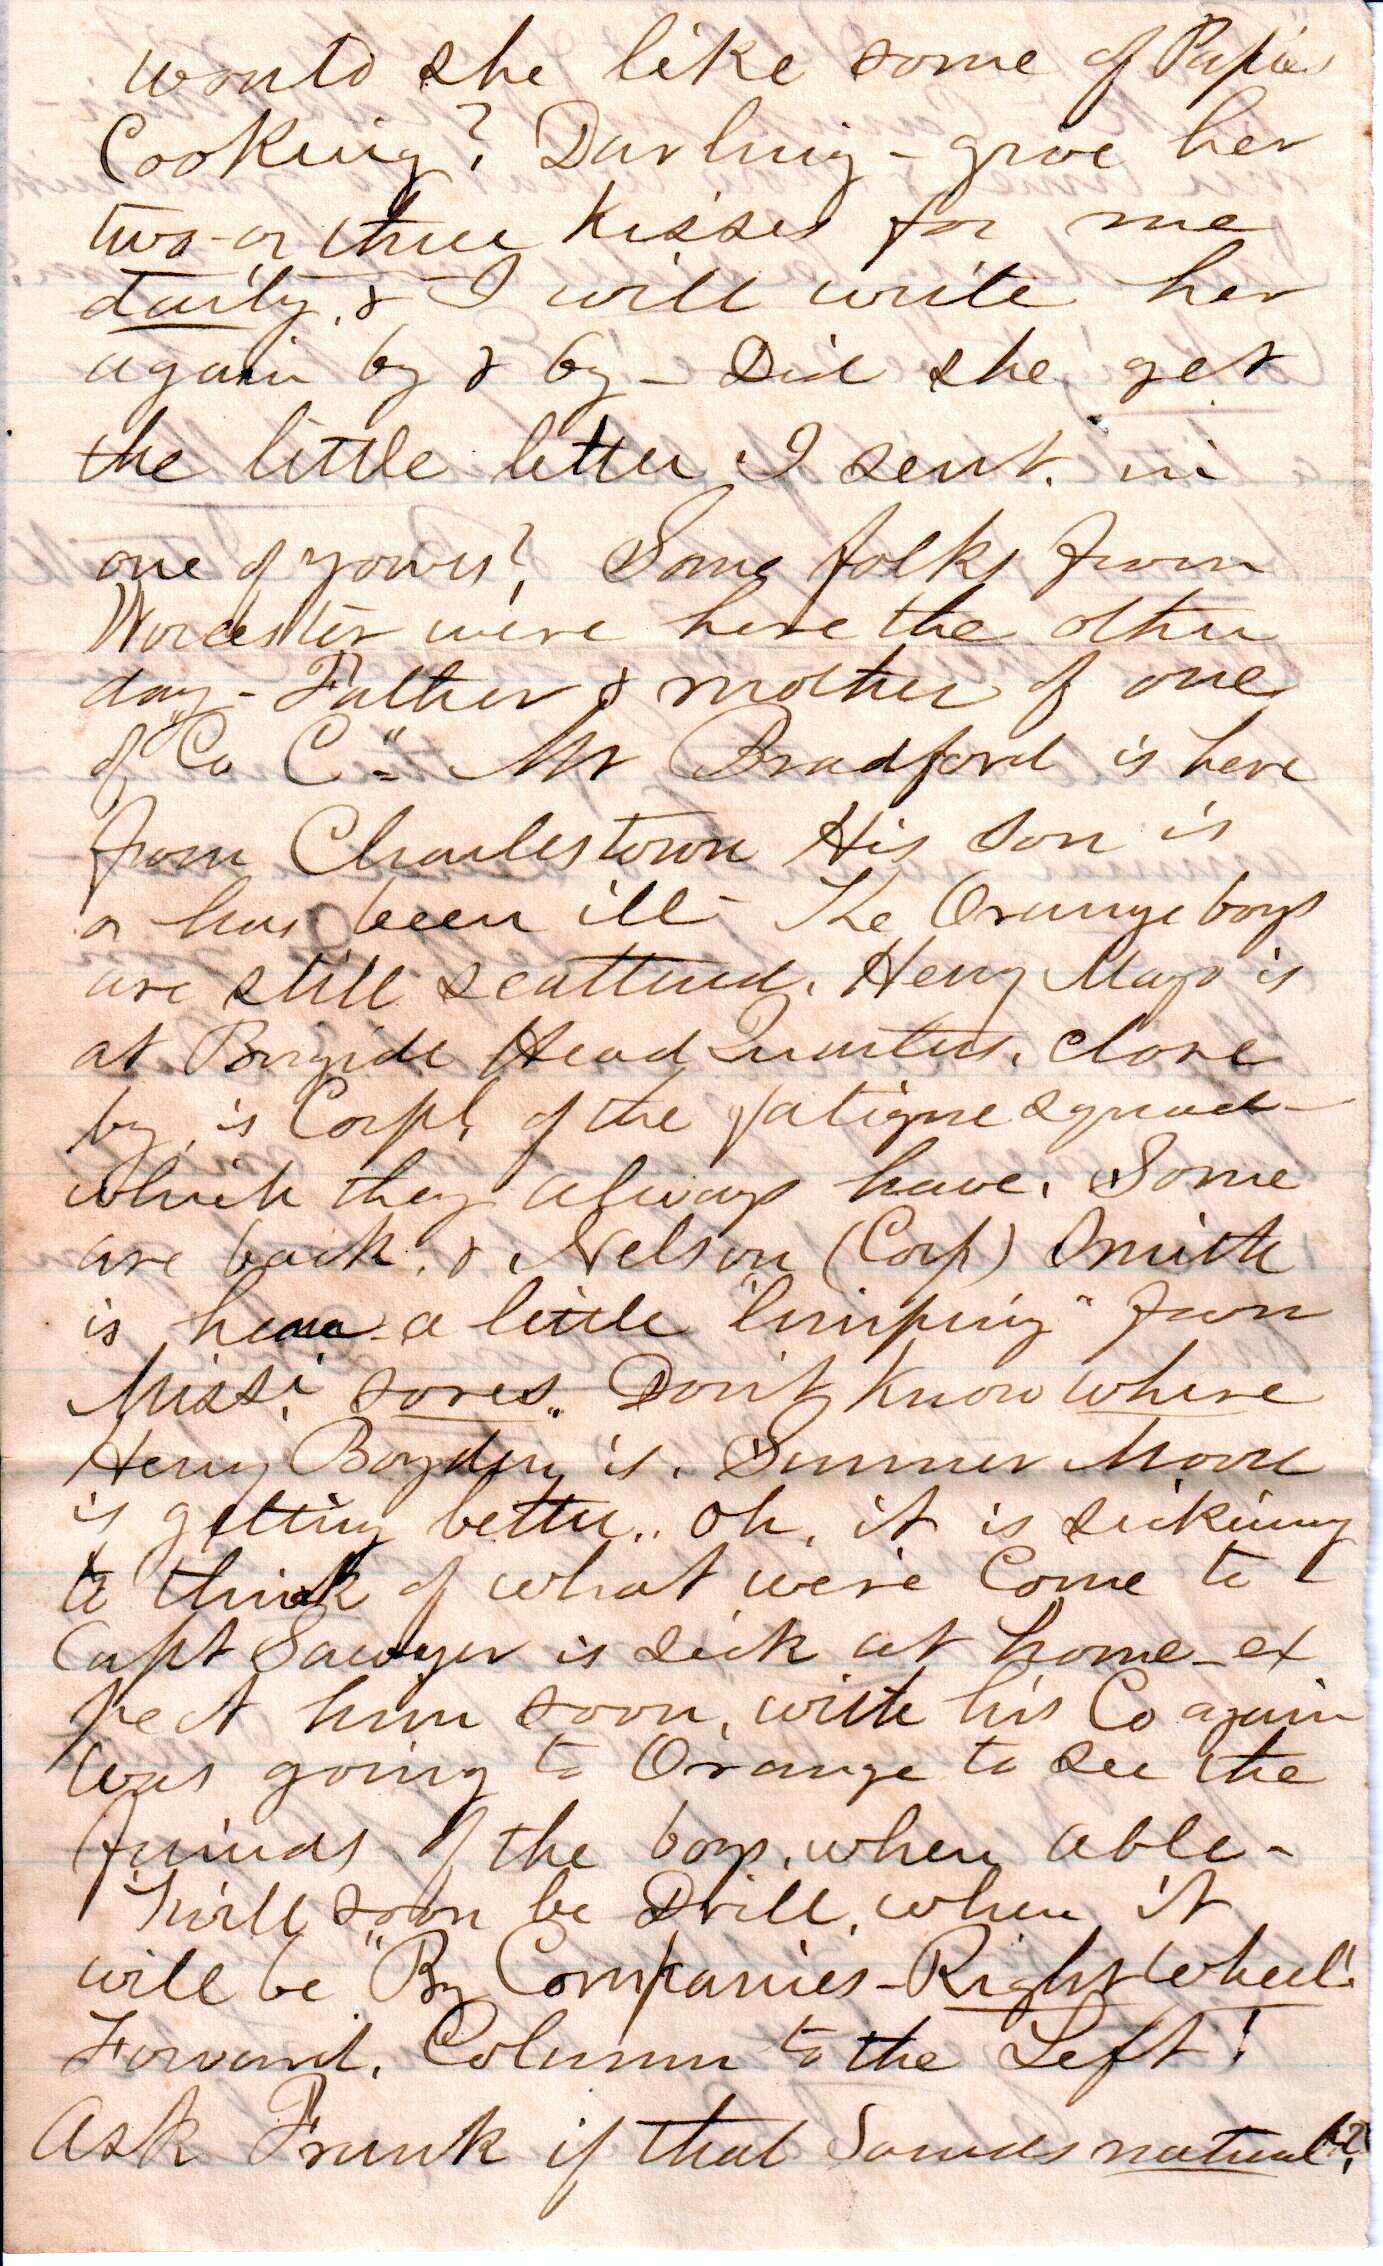 would she like some of Papa's
Cooking? Darling - give her
two - or three kisses for me
daily, & I will write her
again by & by - Did she get
the little letter I sent in
one of yours? Some folks from
Worcester were here the other
day - Father & mother of one
of "Co C" - Mr Bradford is here
from Charlestown His son is
or has been ill - The Orange boys
are still scattered. Henry Mayo is
at Brigade Head Quarters. close
by, is Corpl. of the fatigue squad -
which they always have. Some
are back, & Nelson (Corp) Smith
is here a little "limping" from
Missi. sores. Don't know where
Henry Boyden is. Sumner Moore
is getting better. Oh, it is sickening
to think of what we're come to -
Capt Sawyer is sick at home - ex
pect him soon, with his Co again
was going to Orange to see the
friends of the boys, when able -
'Twill soon be Drill, when it
will be "By Companies - Right Wheel!
Forward, Column to the Left!
Ask Frank if that sounds natural?